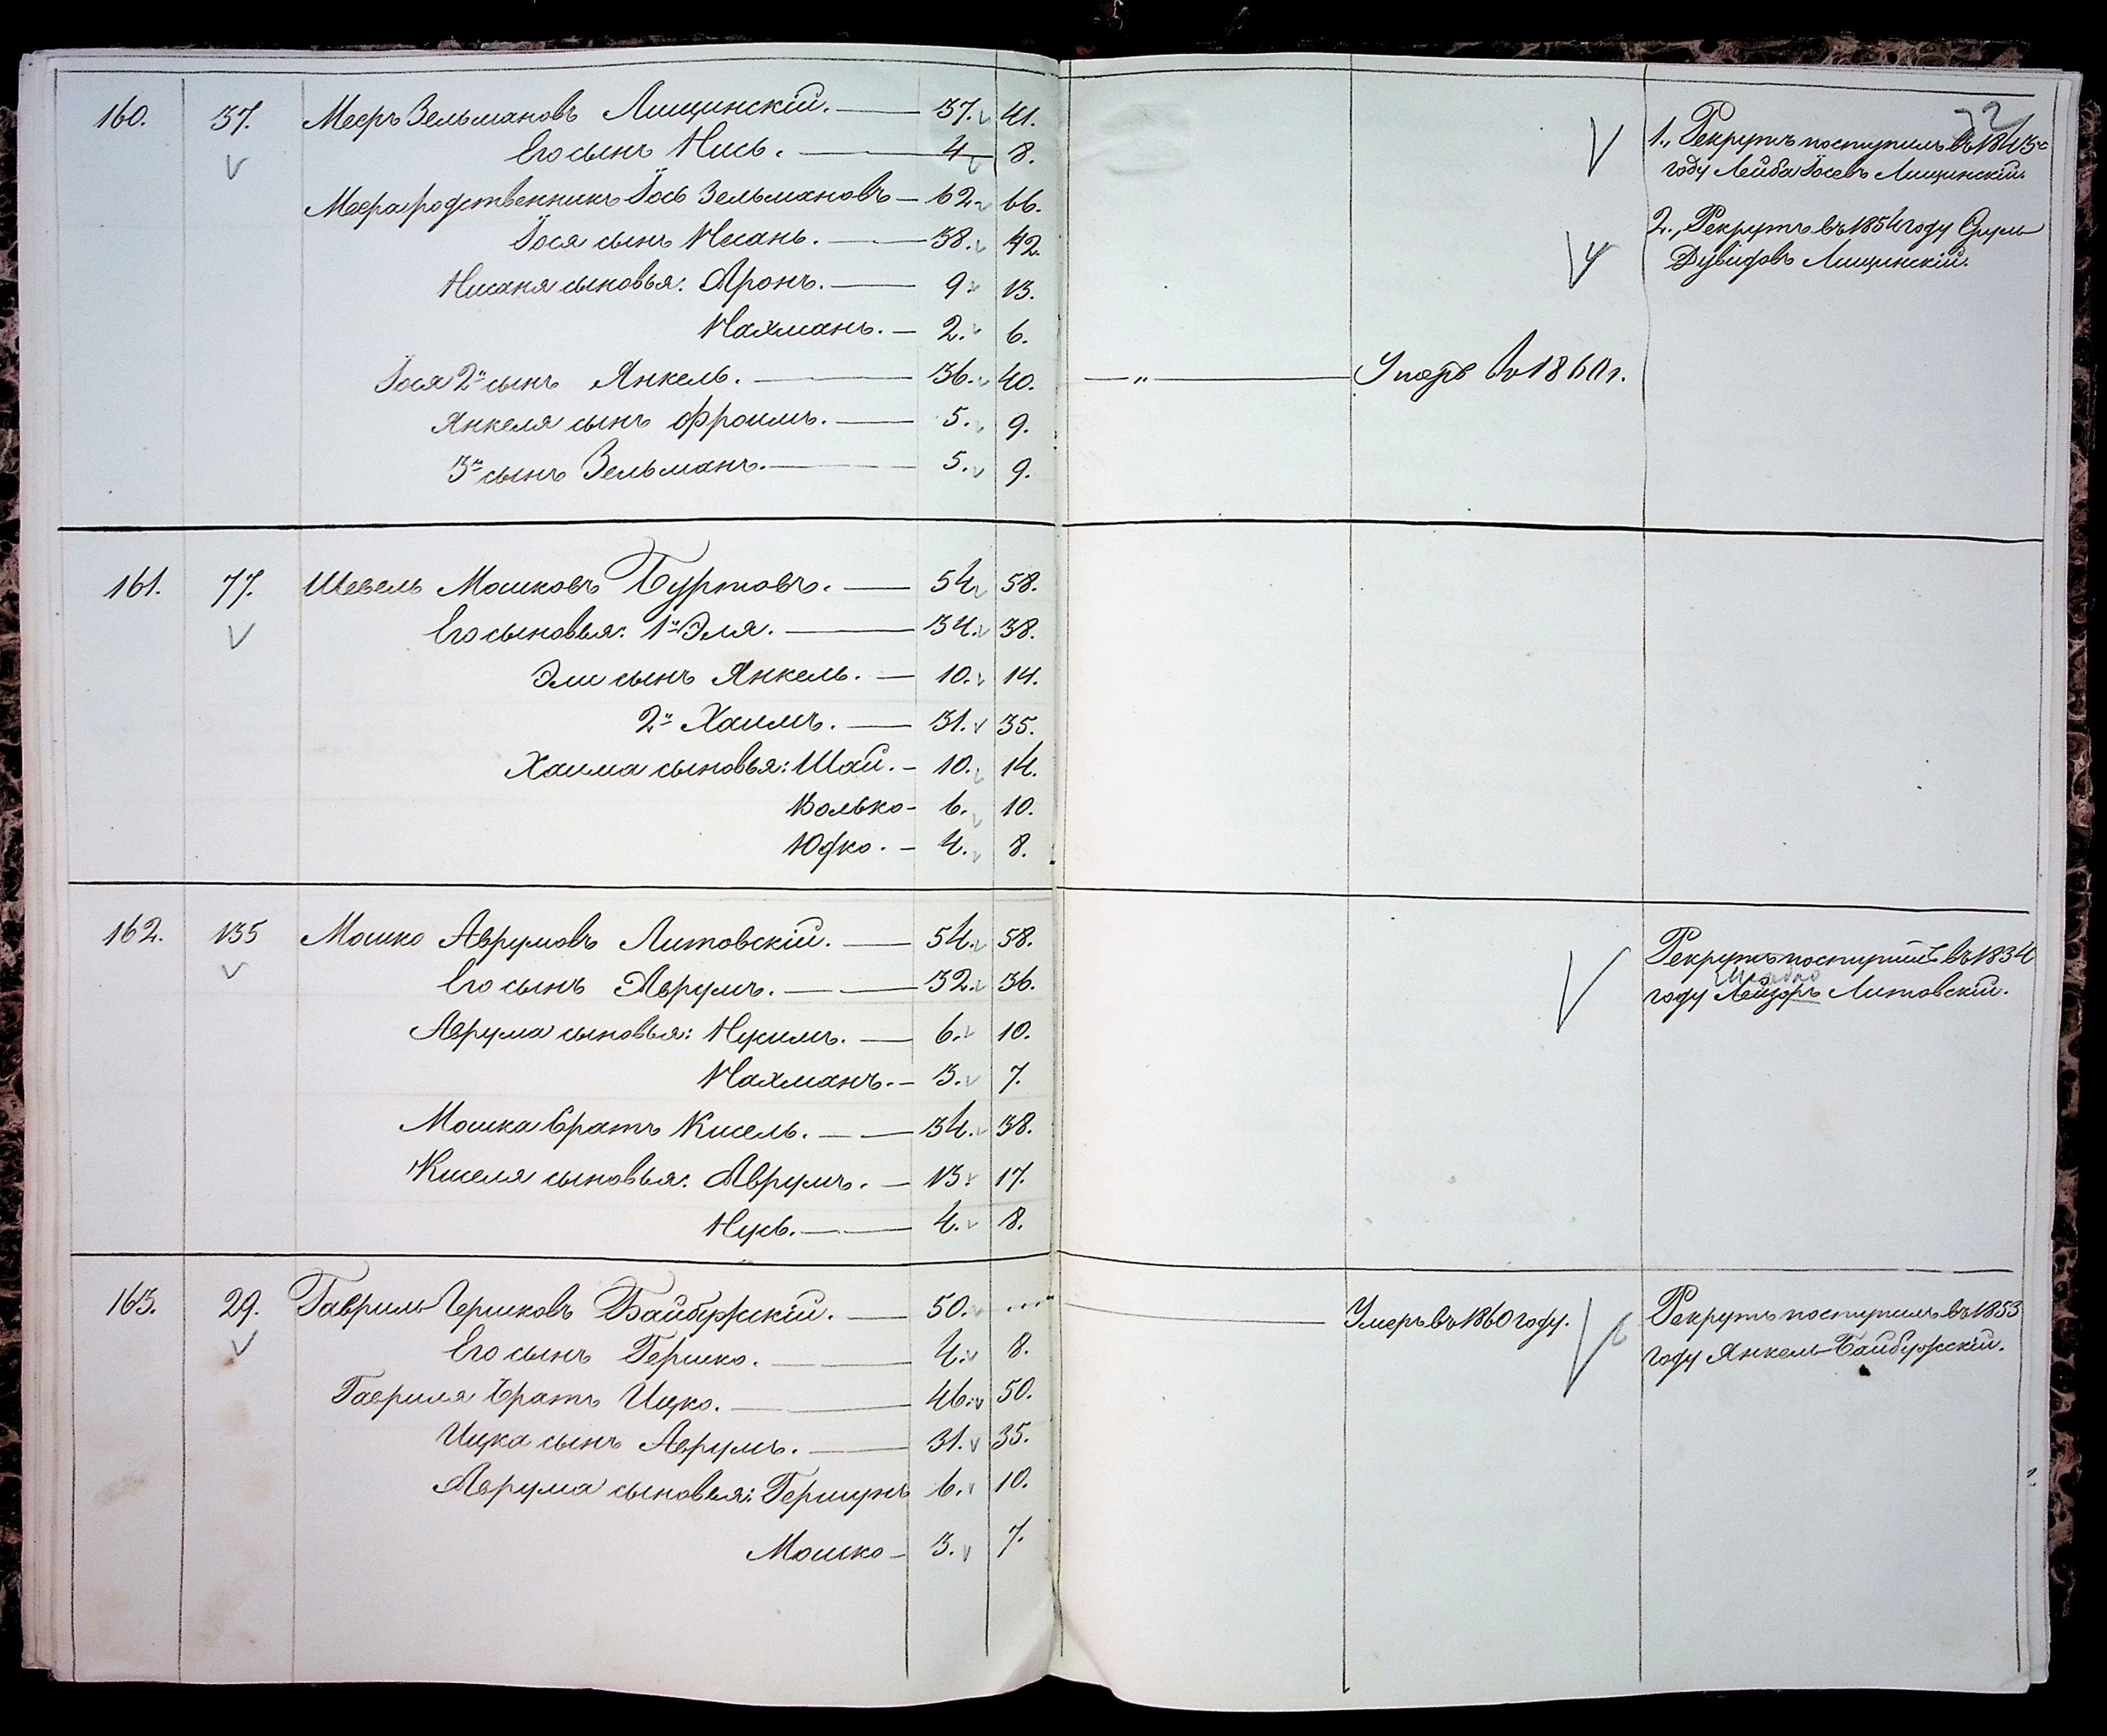 160. 37. Мееръ Зельмановъ Лищинскій. — 37. 41.
Его сынъ Нись. — 4 8.
Меера родственникъ Іось Зельмановъ — 62. 66.
Іося сынъ Нисань. — 38. 42.
Нисаня сыновья: Аронъ. — 9. 13.
Нахмань. — 2. 6.
Іося 2й сынъ Янкель. — 36. 40. — " — Умеръ въ 1860 г.
Янкеля сынъ Фроимъ. — 5. 9.
3й сынъ Зельманъ. — 5. 9.
1., Рекрутъ поступилъ въ 1843
году Лейба Іосевъ Лищинскій.
2., Рекрутъ въ 1854 году Сруль
Дувидовъ Лищинскій.
161. 77. Шевель Мошковъ Буртовъ. — 54. 58.
Его сыновья: 1й Эля. — 34. 38.
Эли сынъ Янкель. — 10. 14.
2й Хаимъ. — 31. 35.
Хаима сыновья: Шай. — 10. 14.
Волько — 6. 10.
Юдко. — 4. 8.
162. 135 Мошко Аврумовъ Литовскій. — 54. 58.
Его сынъ Аврумъ. — 32. 36.
Аврума сыновья: Нухимъ. — 6. 10.
Нахманъ. — 3. 7.
Мошка братъ Кисель. — 34. 38.
Киселя сыновья: Аврумъ. — 13. 17.
Нусь. — 4. 8.
Рекрутъ поступилъ въ 1834
году Лейзоръ Литовскій.
163. 29. Гавриль Гершковъ Байбужскій. — 50. ..." — Умеръ въ 1860 году.
Его сынъ Гершко. — 4. 8.
Гавриля братъ Ицко. — 46. 50.
Ицка сынъ Аврумъ. — 31. 35.
Аврума сыновья: Гершунъ 6. 10.
Мошко — 3. 7.
Рекрутъ поступилъ въ 1853
году Янкель Байбужскій.